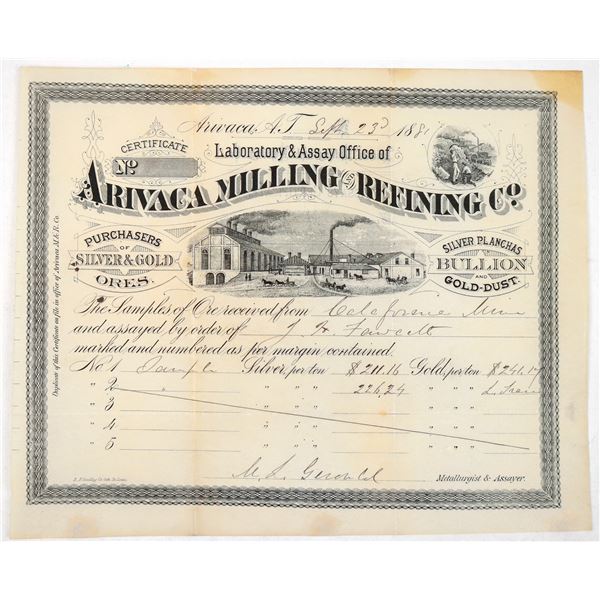 Arivaca, A.T. Sept 23d 1881
CERTIFICATE
No
Laboratory & Assay Office of
ARIVACA MILLING AND REFINING Co.
PURCHASERS
OF
SILVER & GOLD
ORES.
SILVER PLANCHAS
BULLION
AND
GOLD-DUST.
The Samples of Ore received from California Mine
and assayed by order of J H Fawcett
marked and numbered as per margin contained.
No. 1 Sample Silver, per ton $211.16 Gold, per ton $241.17
" 2 " " " 226.24 " "
" 3 " " " " "
" 4 " " " " "
" 5 " " " " "
Metallurgist & Assayer.
Duplicate of this Certificate on file in office of Arivaca M. & R. Co.